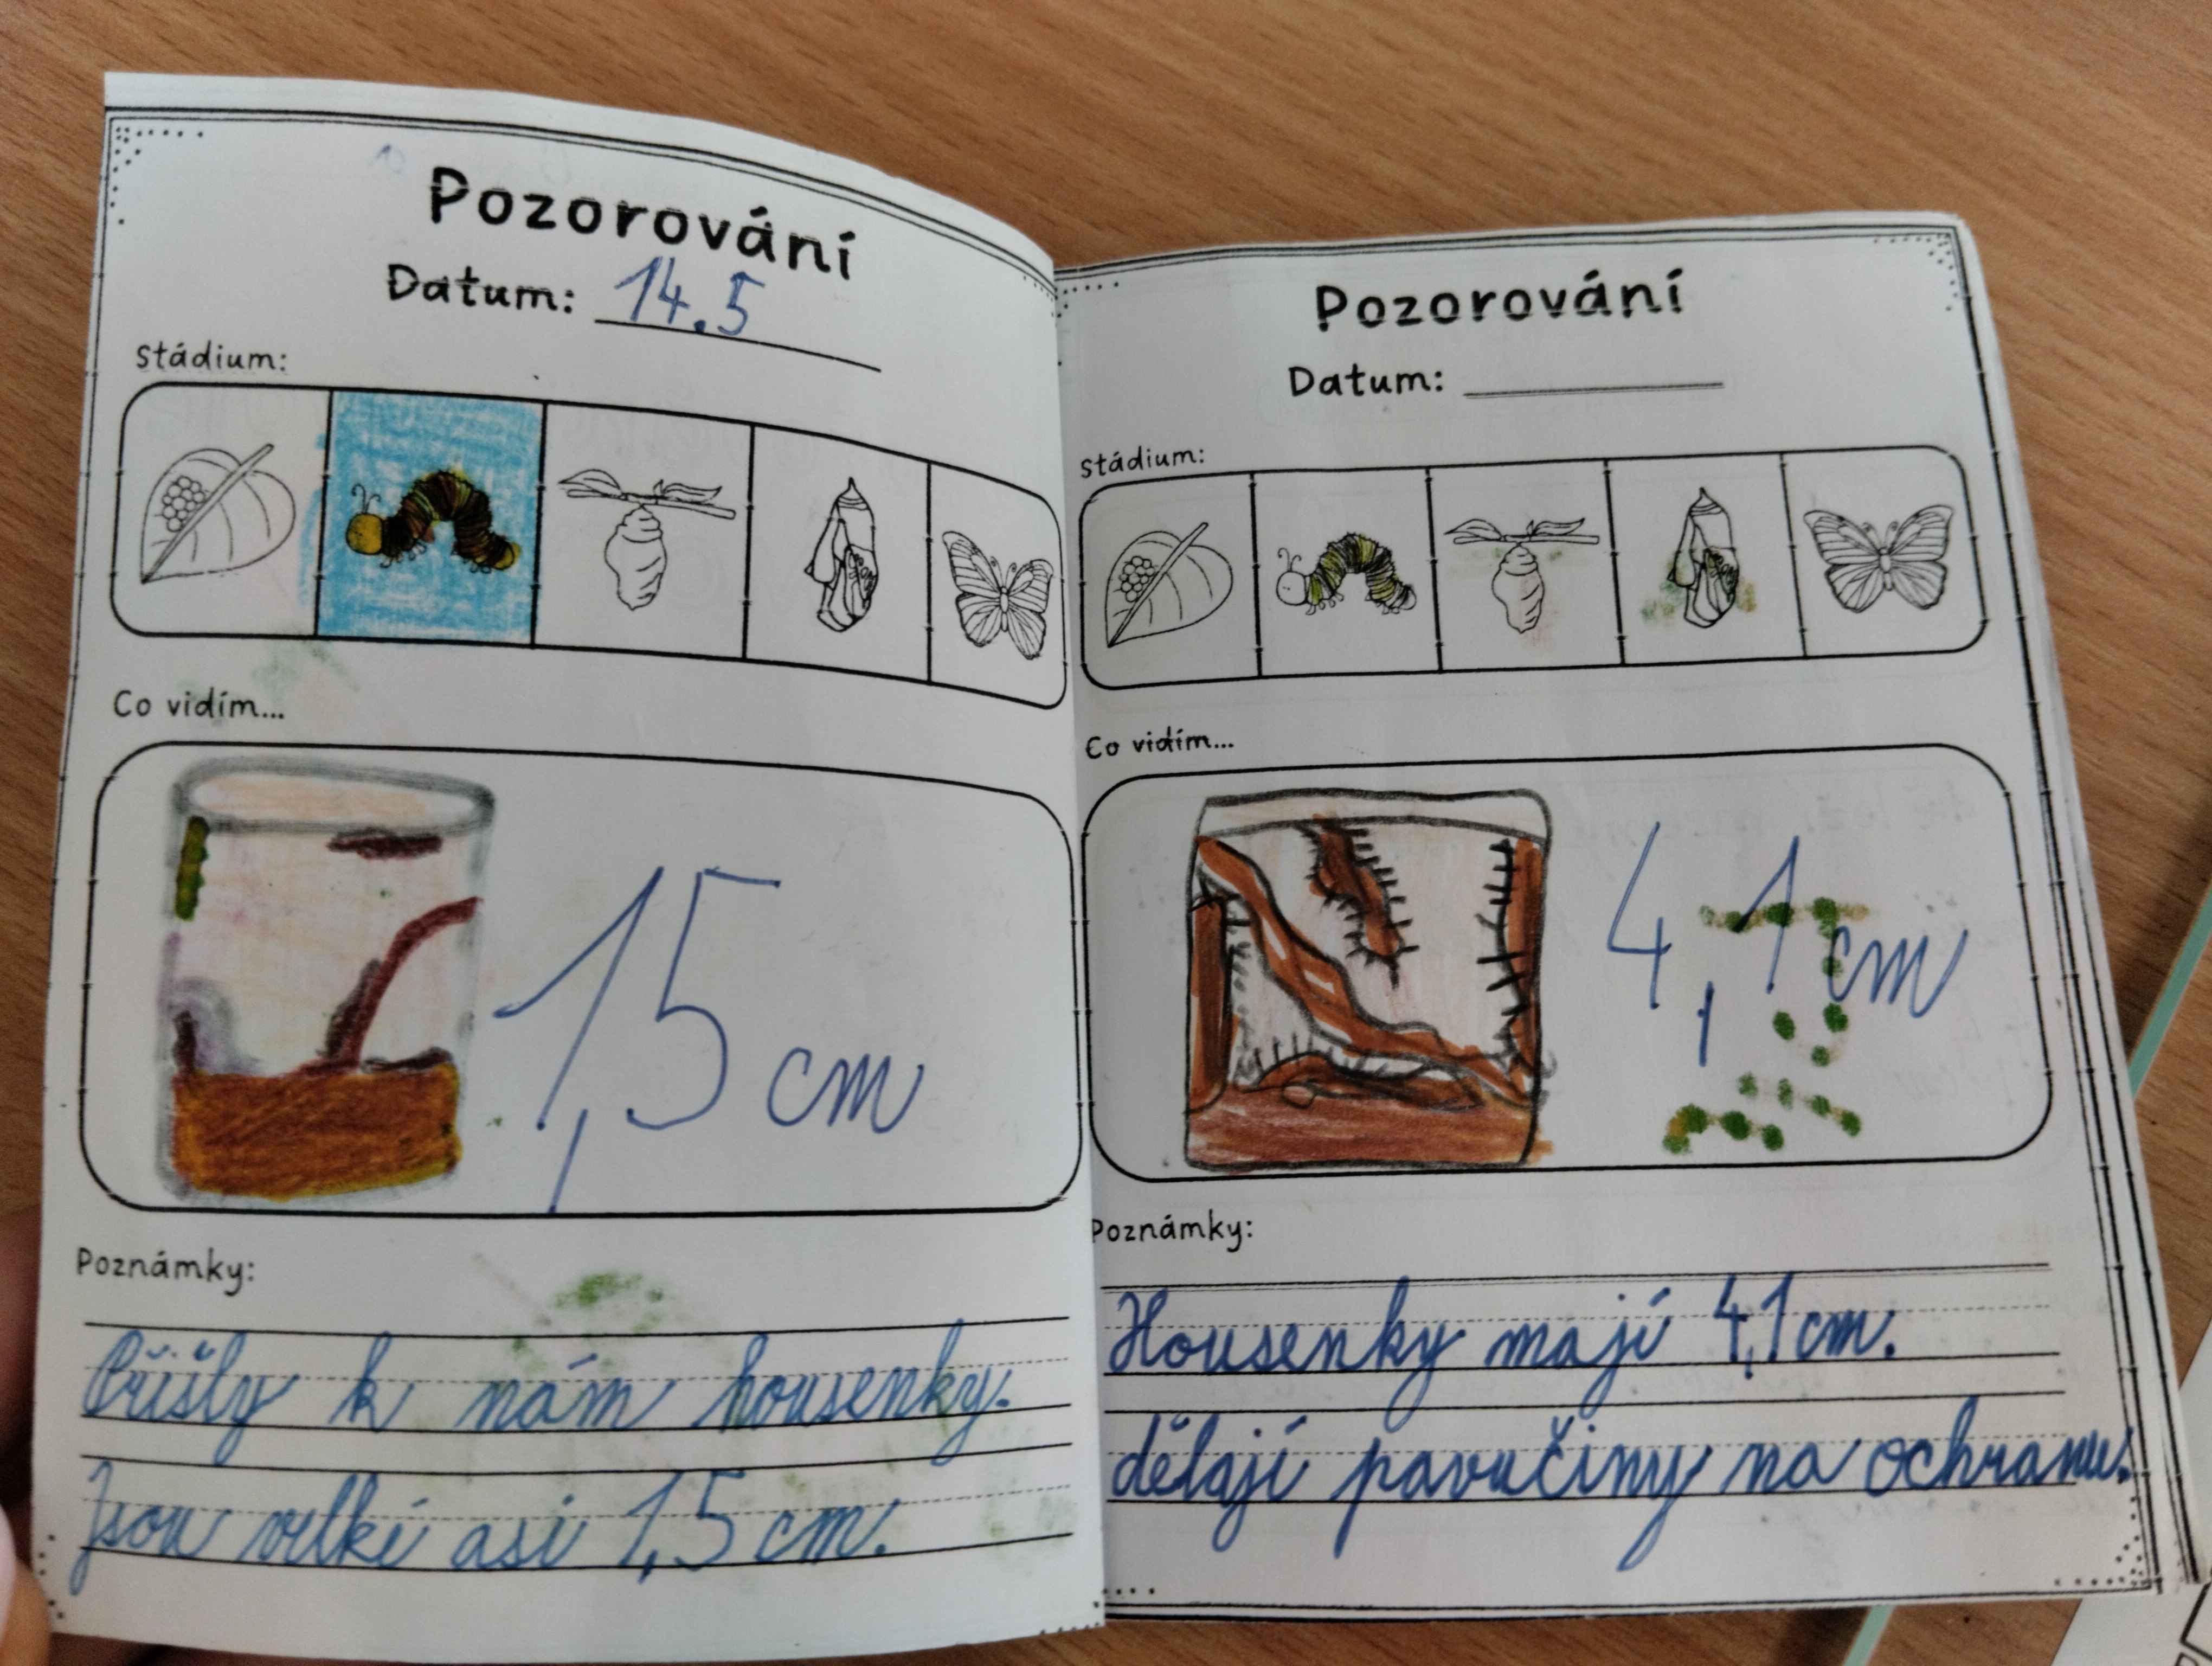 Pozorování
Datum: 14.5
Stádium:
Co vidím...
1,5 cm
Poznámky:
Přišly k nám housenky.
Jsou velké asi 1,5 cm.
Pozorování
Datum:
Stádium:
Co vidím...
4,1 cm
Poznámky:
Housenky mají 4,1 cm.
dělají pavučiny na ochranu.